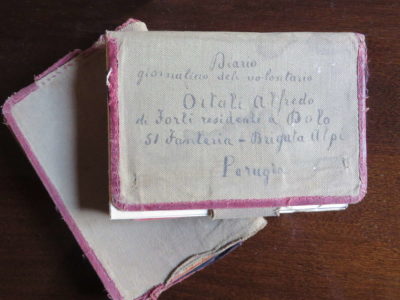 Diario
giornalino del volontario
Ortali Alfredo
di Forlì residente a Bolo
51 Fanteria - Brigata Alpi
Perugia